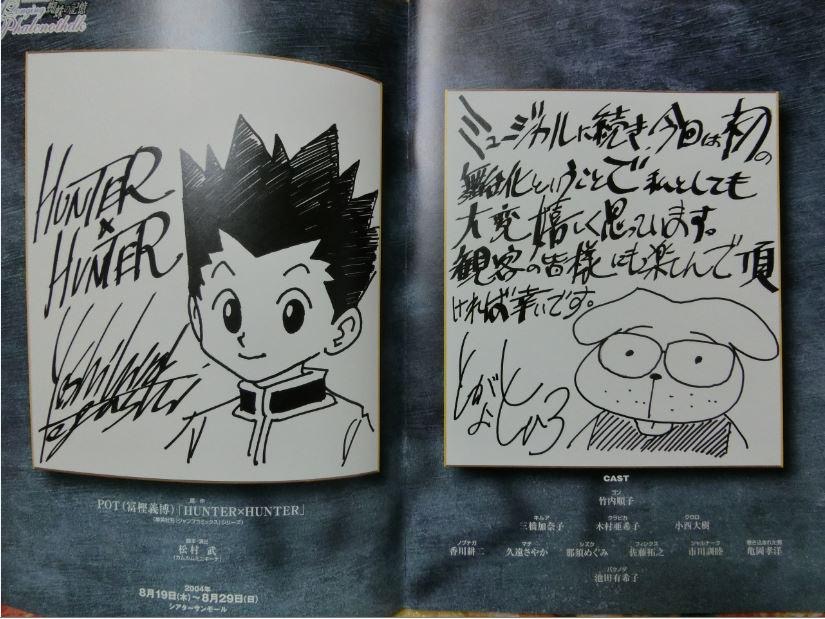 Jumping 舞台の記憶
Phalenothdk
HUNTER
×
HUNTER
Yoshihiro
Togashi
原作
POT(冨樫義博)「HUNTER×HUNTER」
(集英社刊「ジャンプコミックス」シリーズ)
脚本・演出
松村 武
(カムカムミニキーナ)
2004年
8月19日(木)〜8月29日(日)
シアターサンモール
ミュージカルに続き、今回は初の
舞台化ということで私としても
大変嬉しく思っています。
観客の皆様にも楽しんで頂
ければ幸いです。
とがし
よしひろ
CAST
ゴン
竹内順子
キルア
三橋加奈子
クラピカ
木村亜希子
クロロ
小西大樹
ノブナガ
香川耕二
マチ
久遠さやか
シズク
那須めぐみ
フィンクス
佐藤拓之
シャルナーク
市川訓睦
巻き込まれた男
亀岡孝洋
パクノダ
池田有希子